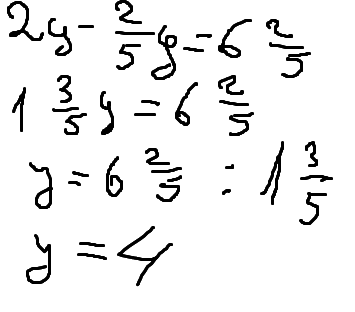 2y - 2/5 y = 6 2/5
1 3/5 y = 6 2/5
y = 6 2/5 : 1 3/5
y = 4